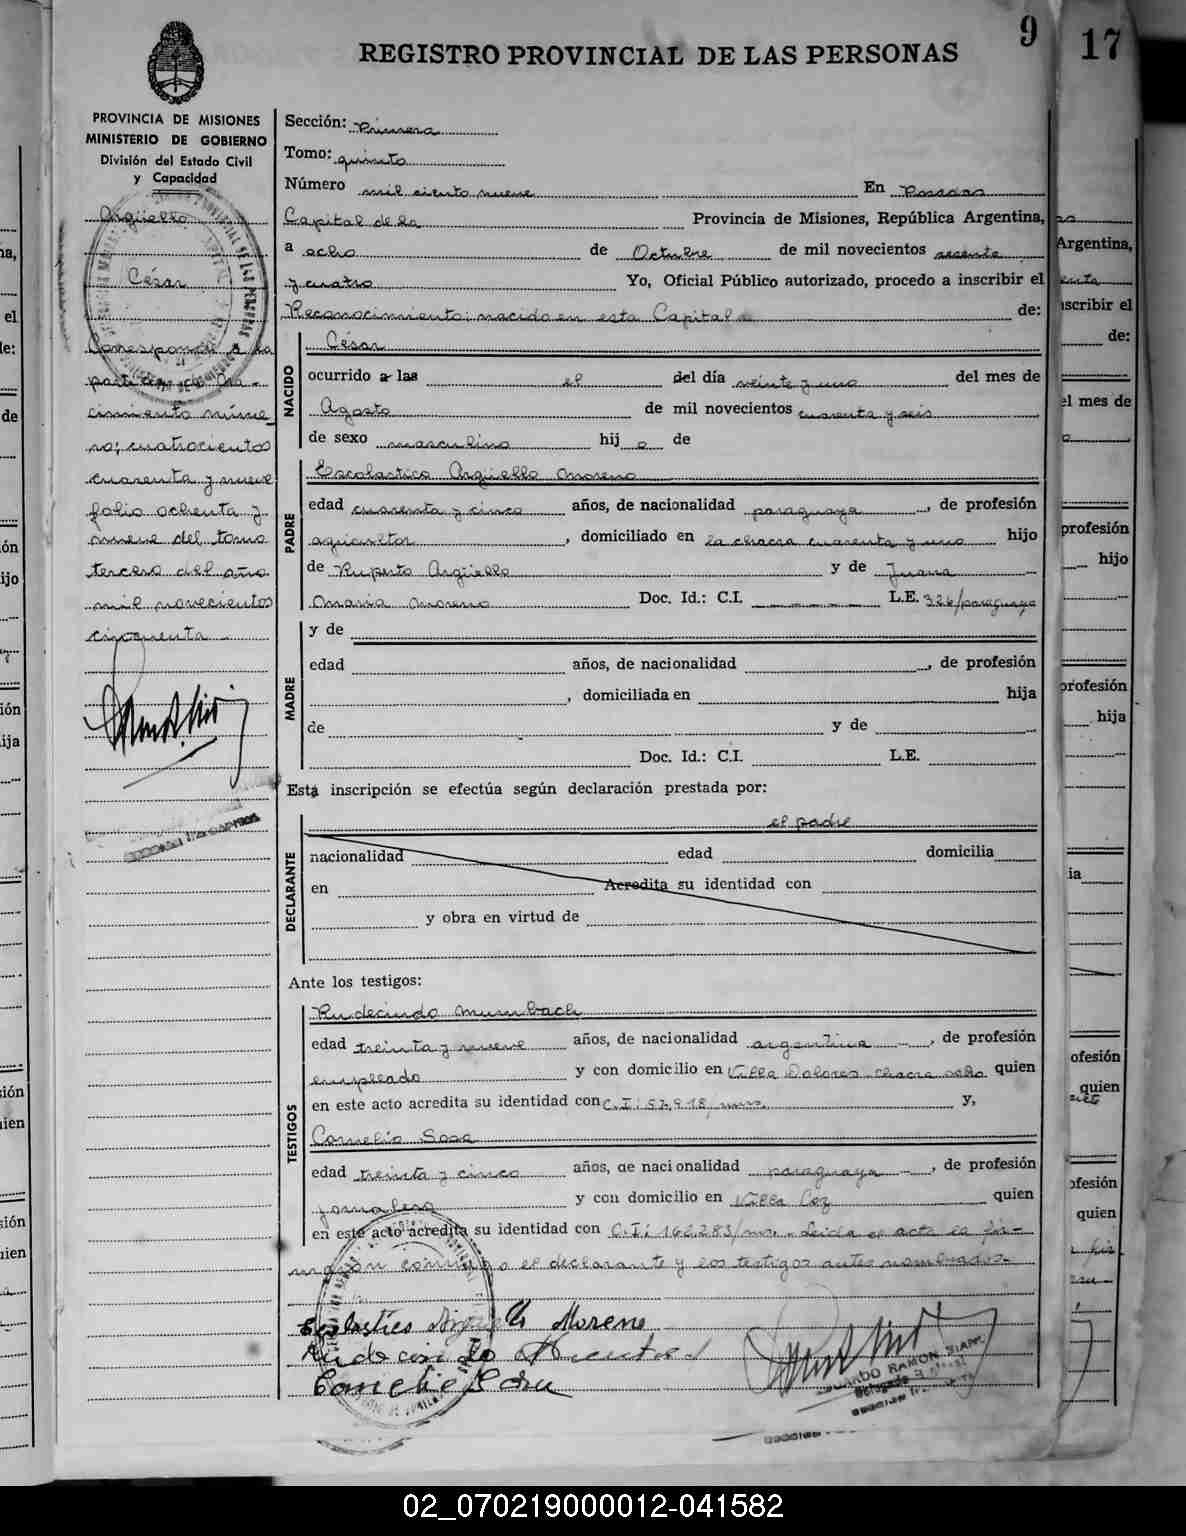 9
17
REGISTRO PROVINCIAL DE LAS PERSONAS
PROVINCIA DE MISIONES
MINISTERIO DE GOBIERNO
División del Estado Civil
y Capacidad
Argüello
César
Corresponde a la
partida de Na-
cimiento núme
ro; cuatrocientos
cuarenta y nueve
folio ochenta y
nueve del tomo
tercero del año
mil novecientos
cincuenta
Sección: Primera
Tomo: quinto
Número mil ciento nueve En Posadas
Capital de la Provincia de Misiones, República Argentina,
a ocho de Octubre de mil novecientos sesenta
y cuatro Yo, Oficial Público autorizado, procedo a inscribir el
Reconocimiento; nacido en esta Capital de:
NACIDO
César
ocurrido a las el del día veinte y uno del mes de
Agosto de mil novecientos cuarenta y seis
de sexo masculino hij o de
PADRE
Escolastico Argüello Moreno
edad cuarenta y cinco años, de nacionalidad paraguaya, de profesión
agricultor, domiciliado en la chacra cuarenta y uno hijo
de Ruperto Argüello y de Juana
Maria Moreno Doc. Id.: C.I. L.E. 326/paraguaya
MADRE
y de
edad años, de nacionalidad, de profesión
, domiciliada en hija
de y de
Doc. Id.: C.I. L.E.
Esta inscripción se efectúa según declaración prestada por:
DECLARANTE
el padre
nacionalidad edad domicilia
en Acredita su identidad con
y obra en virtud de
Ante los testigos:
TESTIGOS
Rudecindo Mumbach
edad treinta y nueve años, de nacionalidad argentina, de profesión
empleado y con domicilio en Villa Dolores chacra ocho quien
en este acto acredita su identidad con C.I: 57.918/mns. y,
Cornelio Sosa
edad treinta y cinco años, de nacionalidad paraguaya, de profesión
jornalero y con domicilio en Villa Coz quien
en este acto acredita su identidad con C.I: 162.283/ms. Leida el acta la fir-
maron conmigo el declarante y los testigos antes nombrados.
Escolastico Argüello Moreno
02_070219000012-041582